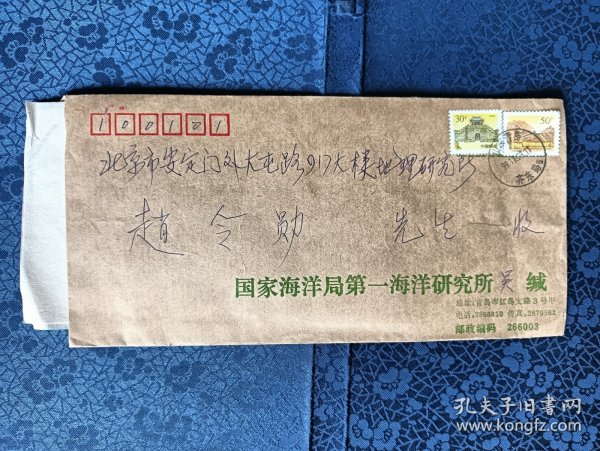 30分
50分
100101
北京市安定门外大屯路917大楼地理研究所
赵令勋 先生 收
国家海洋局第一海洋研究所 吴 缄
地址:青岛市红岛支路3号甲
电话:2868810 传真:2879562
邮政编码 266003
孔夫子旧书网
www.kongfz.com